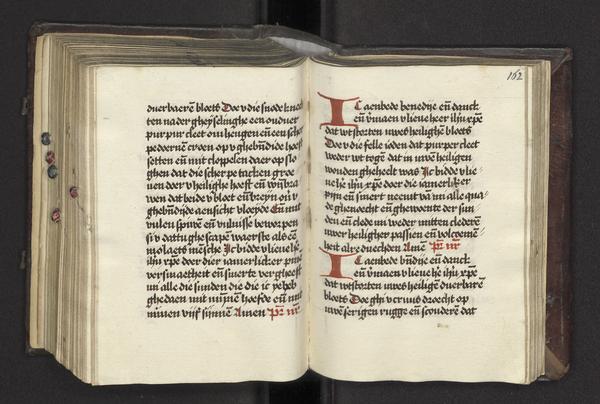 duerbaerē bloets Doe v die snode knech
ten nader gheyselinghe een oud vuer
purpur cleet om hengen eñ een scher
pe doernē croen op v ghebñdide hoeft
setten eñ mit cloppelen daer op slo
ghen dat die scherpe tacken groe
uen doer v heilighe hoeft eñ
wen dat beide v bloet eñ breyn ou v
ghebñdide aensicht vloeyde Eñ mit
vulen spuwē eñ vulnisse beworpen
si v dattu ghescapē waerste als eē
molaets mēsche Ic bidde v lieue he
ihū xpē doer dier iamerliker pine
versmaetheit eñ smerte vergheeft
mi alle die sunden die die ic ye heb
ghedaen mit mynē hoefde eñ mit
minen vijf sijnnē Amen pr̄ nr̄
162
IC aenbede benedije eñ danck
eñ v̄maen v lieue heer ihū xpē
dat wtstorten uwes heilighē bloets
Doe v die felle ioden dat purper cleet
weder wt togē dat in uwē heiligen
wonden ghehecht was Ic bidde v lie
ue he ihū xpē doer die iamerliker
pijn eñ smert neemt vā mi alle qua
de ghewoent eñ ghewoente der sun
den eñ clede mi weder mitten clederē
uwer heiligher passien eñ volcome
heit alre duechden Amē pr̄ nr̄
IC aenbede bñdije eñ danck
eñ v̄maen v lieue he ihū xpē
dat wtstorten uwes heiligē duerbarē
bloets Doe ghi v cruus droecht op
uwē serigen rugge eñ scouderē dat